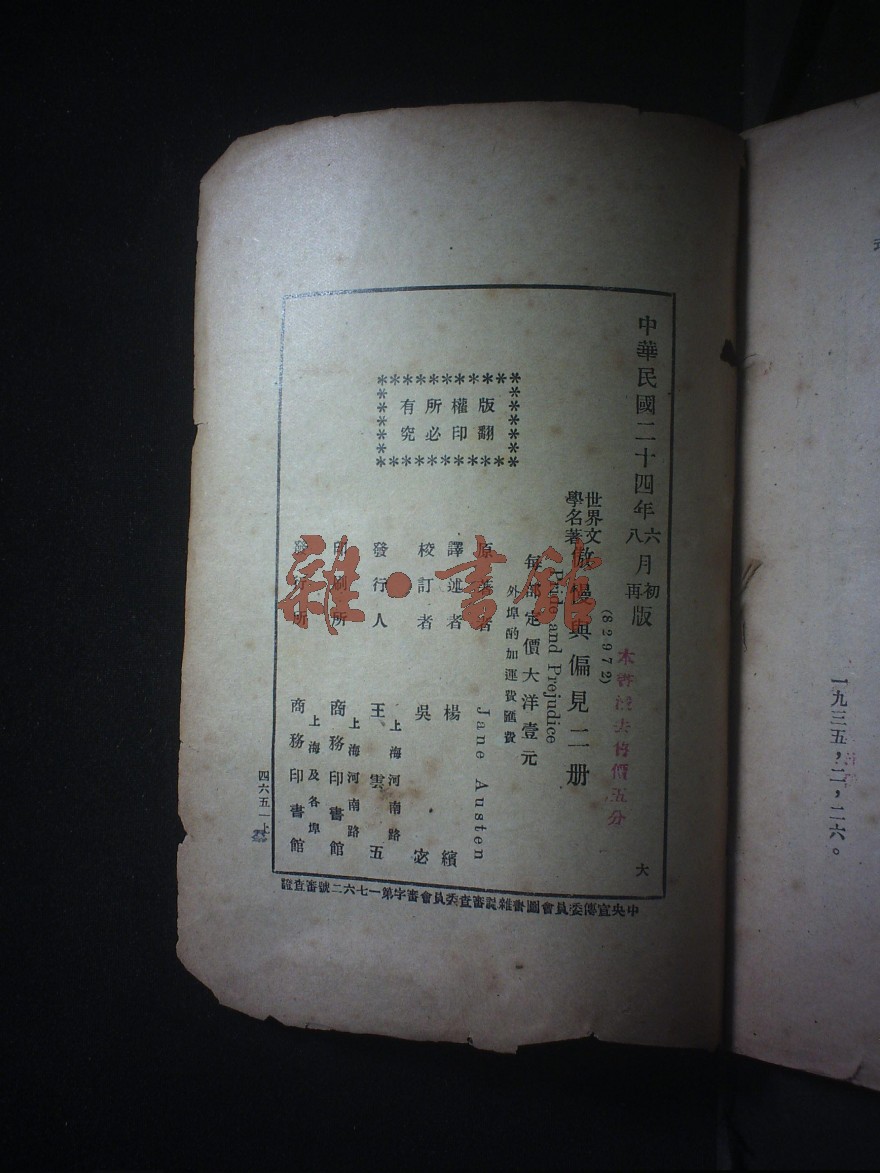 一九三五，二，二六。
中華民國二十四年六月初版
八 再
世界文學名著
傲慢與偏見二册
(82972)
Pride and Prejudice
每部定價大洋壹元
外埠酌加運費匯費
原著者 Jane Austen
譯述者 楊繽
校訂者 吳宓
發行人 王雲五
上海河南路
印刷所 商務印書館
上海河南路
發行所 商務印書館
上海及各埠
版權所有
翻印必究
大
四六五一上
中央宣傳委員會圖書雜誌審查委員會審字第一七六二號審查證
雜·書館